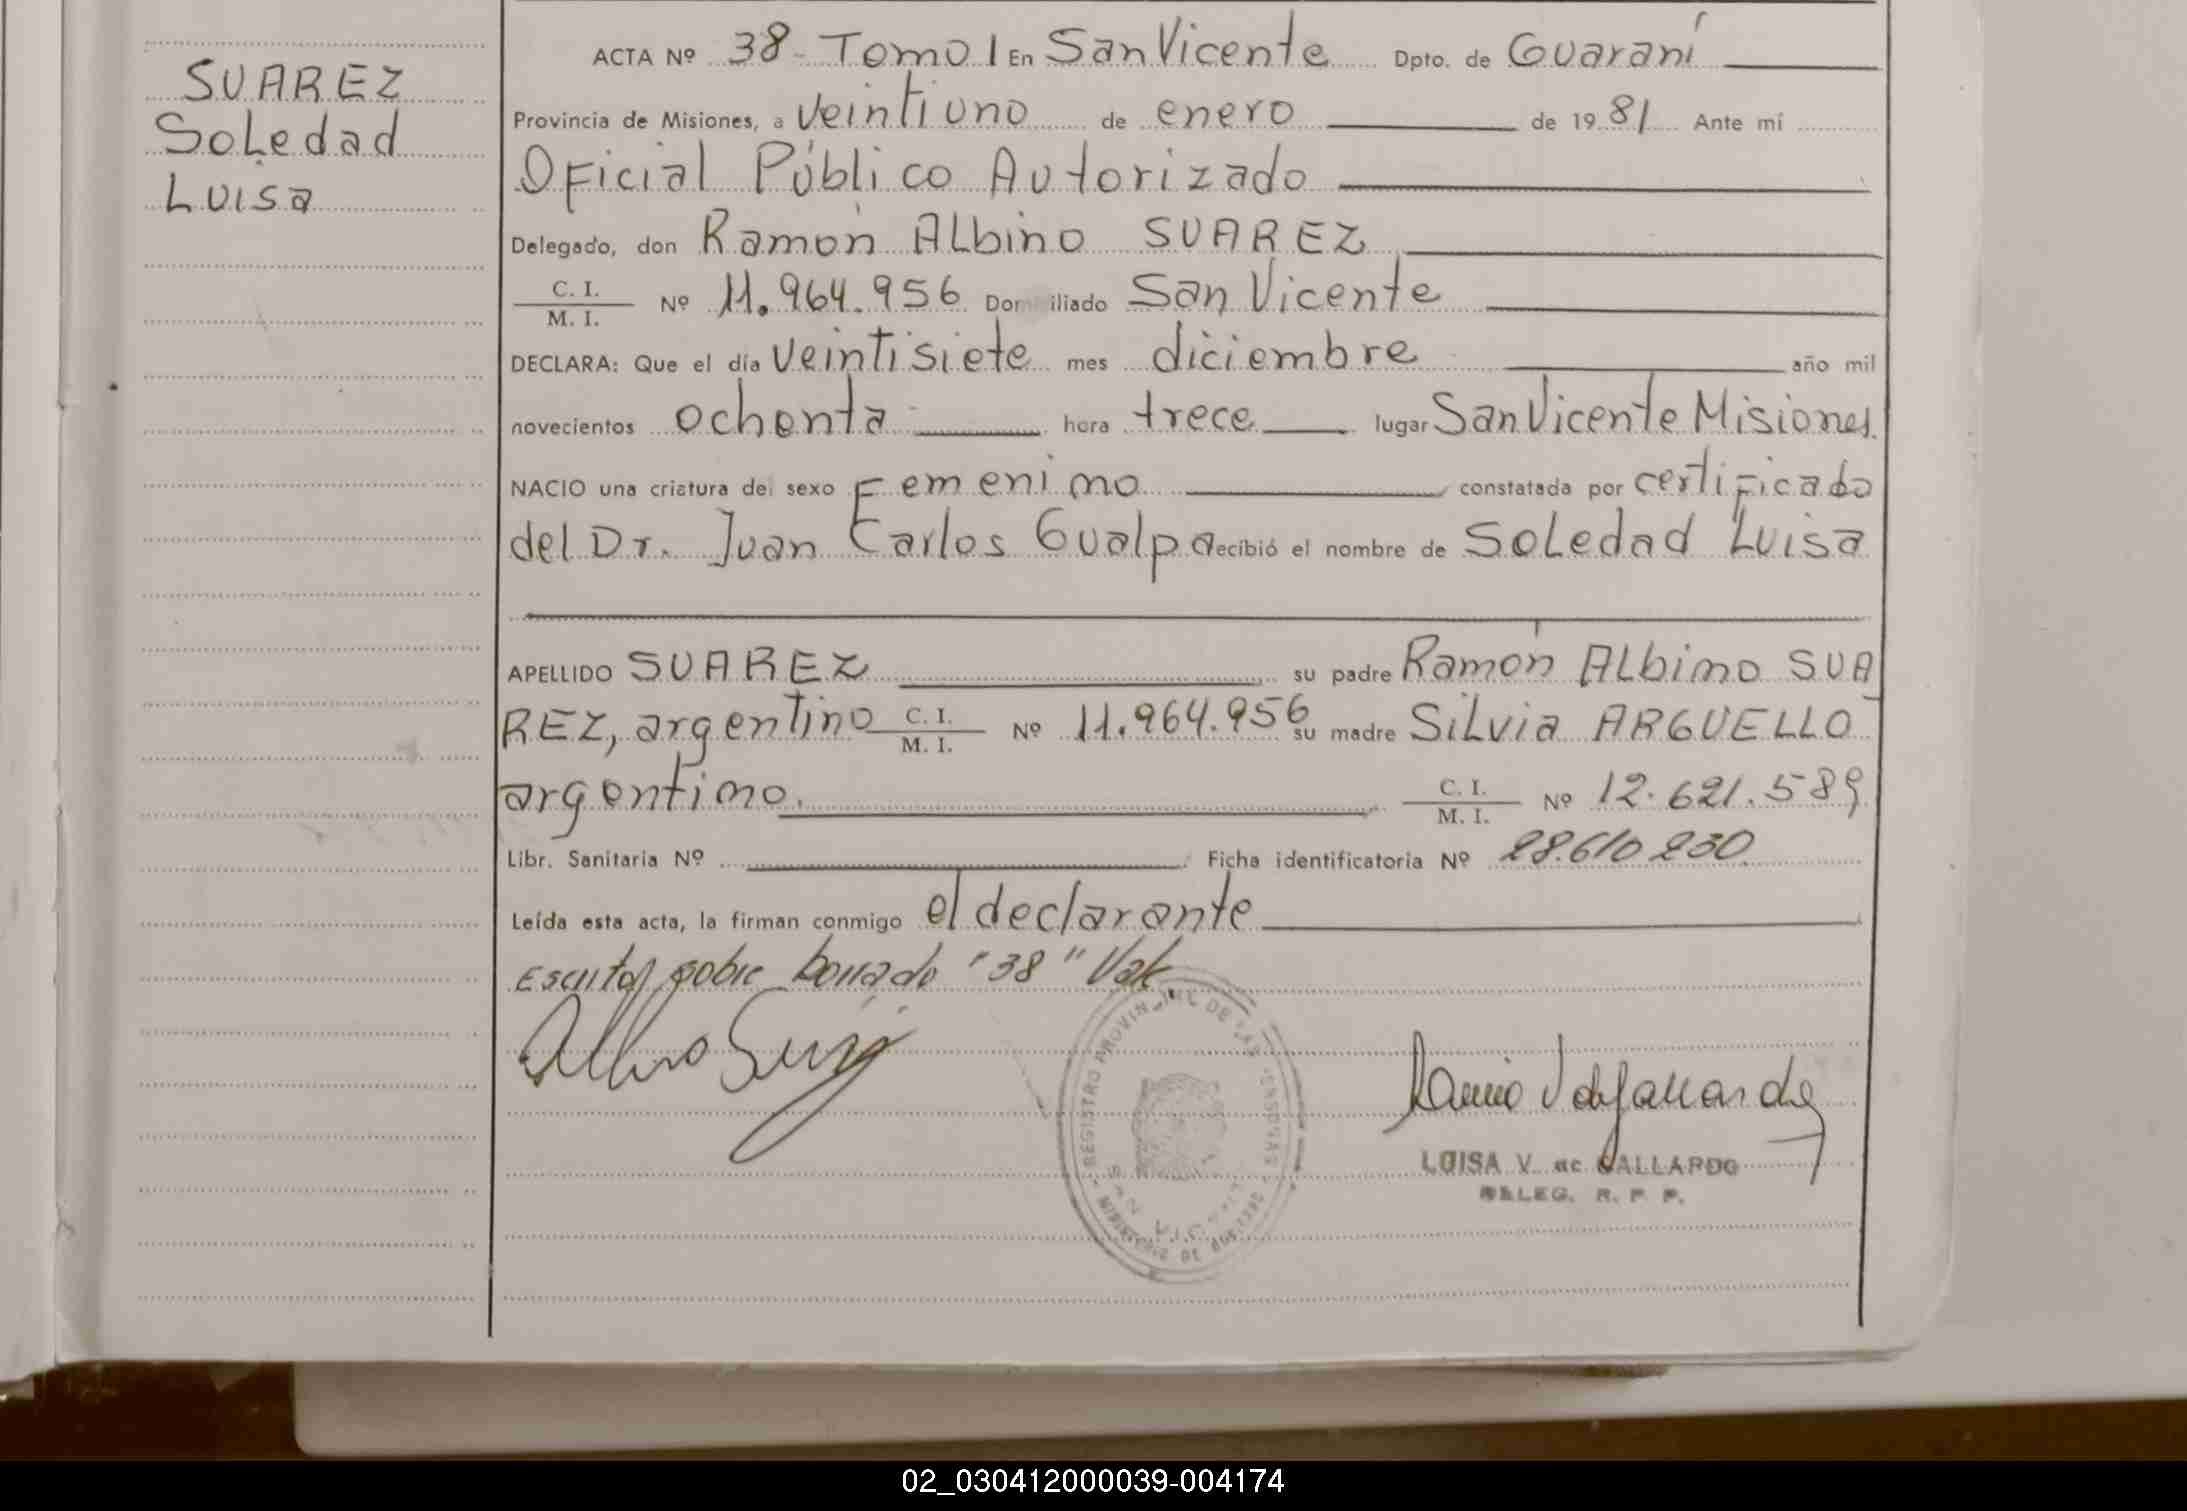 SUAREZ
Soledad
Luisa
ACTA Nº 38 - Tomo I En San Vicente Dpto. de Guaraní
Provincia de Misiones, a veintiuno de enero de 1981 Ante mí
Oficial Público Autorizado
Delegado, don Ramón Albino SUAREZ
C. I.
M. I. Nº 11.964.956 Domiciliado San Vicente
DECLARA: Que el día veintisiete mes diciembre año mil
novecientos ochenta hora trece lugar San Vicente Misiones
NACIO una criatura del sexo Femenino constatada por certificado
del Dr. Juan Carlos Gualpa recibió el nombre de Soledad Luisa
APELLIDO SUAREZ su padre Ramón Albino SUA
REZ, argentino C. I. M. I. Nº 11.964.956 su madre Silvia ARGÜELLO
argentino. C. I. M. I. Nº 12.621.589
Libr. Sanitaria Nº Ficha identificatoria Nº 28.610 230
Leída esta acta, la firman conmigo el declarante
Escrito sobre borrado "38" Vale.
REGISTRO PROVINCIAL DE LAS PERSONAS
SAN VICENTE
LUISA V. de GALLARDO
DELEG. R. P. P.
02_030412000039-004174